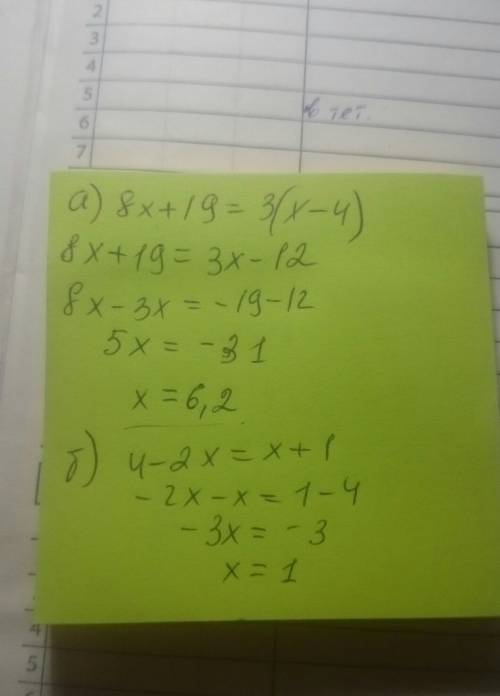 2
3
4
5
6
7
в тет.
а) 8x+19=3(x-4)
8x+19=3x-12
8x-3x=-19-12
5x=-31
x=6,2
б) 4-2x=x+1
-2x-x=1-4
-3x=-3
x=1
4
5